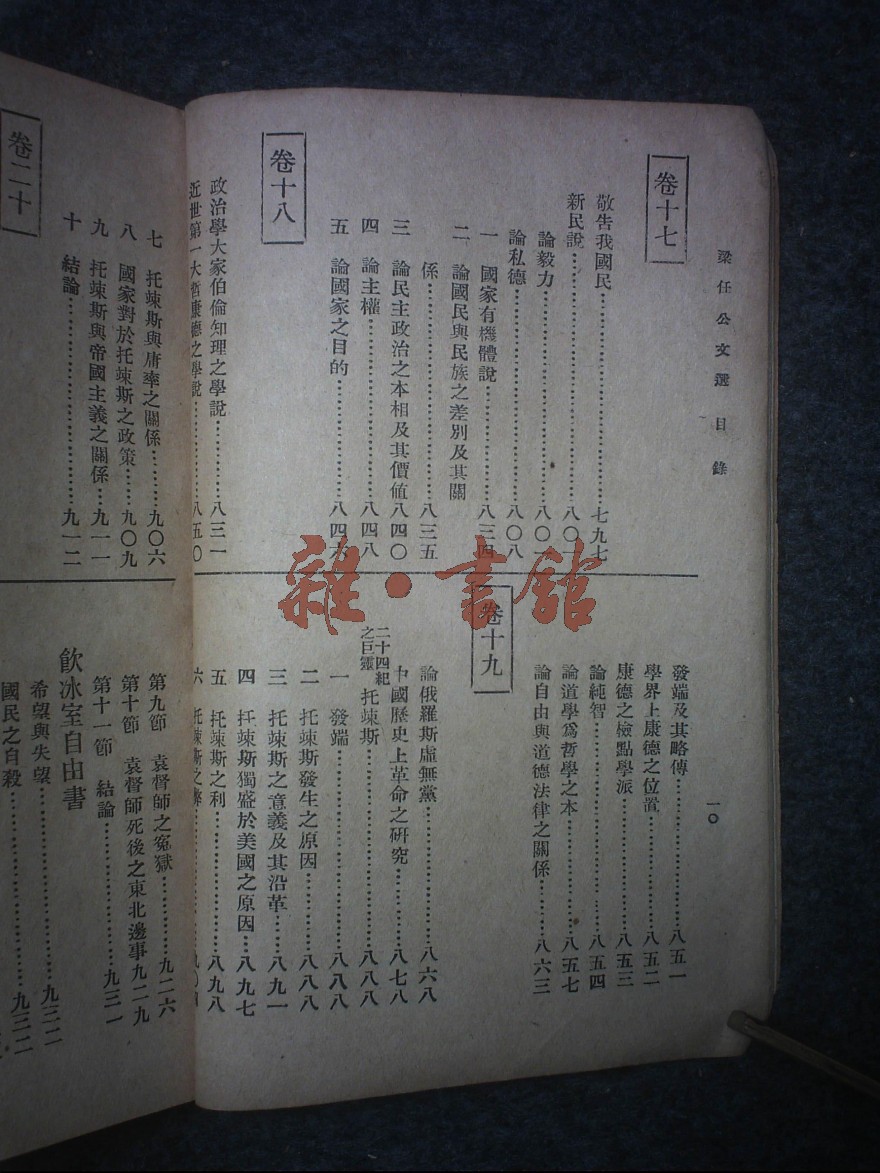 梁任公文選 目錄
一〇
卷十七
敬告我國民……七九七
新民說……八〇一
論毅力……八〇一
論私德……八〇八
一 國家有機體說……八三四
二 論國民與民族之差別及其關
係……八三五
三 論民主政治之本相及其價値……八四〇
四 論主權……八四八
五 論國家之目的……八四六
卷十八
政治學大家伯倫知理之學說……八三一
近世第一大哲康德之學說……八五〇
發端及其略傳……八五一
學界上康德之位置……八五二
康德之檢點學派……八五三
論純智……八五四
論道學爲哲學之本……八五七
論自由與道德法律之關係……八六三
卷十九
論俄羅斯虛無黨……八六八
中國歷史上革命之研究……八七八
二十四紀之巨靈 托竦斯……八八八
一 發端……八八八
二 托竦斯發生之原因……八八八
三 托竦斯之意義及其沿革……八九一
四 托竦斯獨盛於美國之原因……八九七
五 托竦斯之利……八九八
六 托竦斯之弊……
七 托竦斯與庸率之關係……九〇六
八 國家對於托竦斯之政策……九〇九
九 托竦斯與帝國主義之關係……九一一
十 結論……九一二
卷二十
第九節 袁督師之寃獄……九二六
第十節 袁督師死後之東北邊事九二九
第十一節 結論……九三一
飲冰室自由書
希望與失望……九三二
國民之自殺……九三二
雜·書館